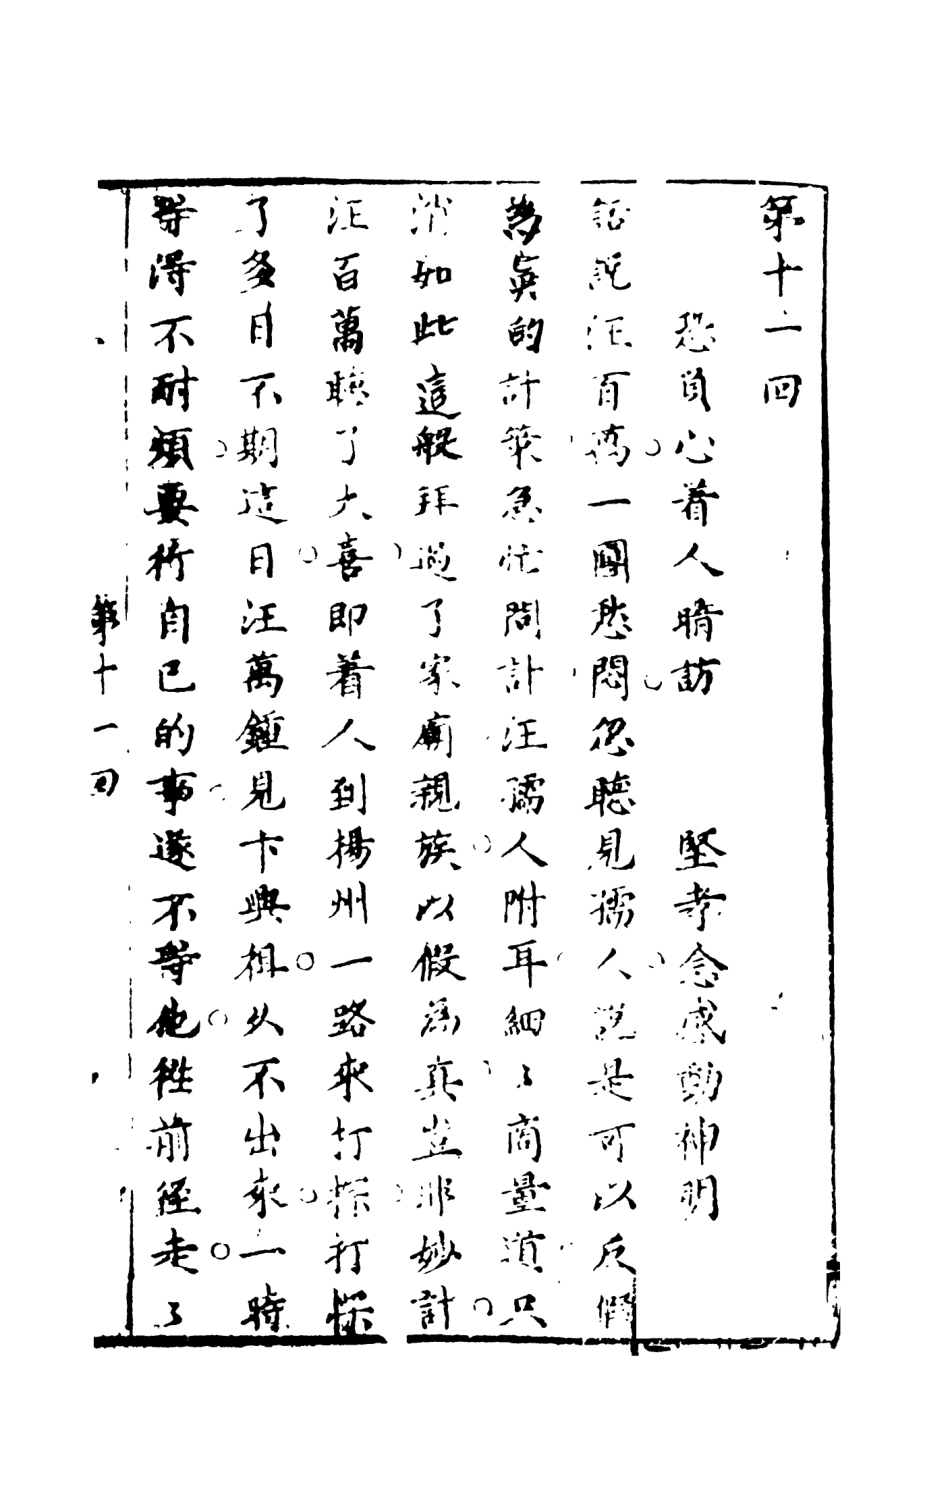 第十一回
恐負心着人暗訪　堅孝念感動神明
話說汪百萬一團愁悶忽聽見孺人說是可以反假
為真的計策急忙問計汪孺人附耳細〻商量道只
消如此這般拜過了家廟親族以假為真豈非妙計
汪百萬聽了大喜即着人到揚州一路來打探打探
了多日不期這日汪萬鍾見卞興相久不出來一時
等得不耐煩要行自已的事遂不等他徃前徑走了
第十一回